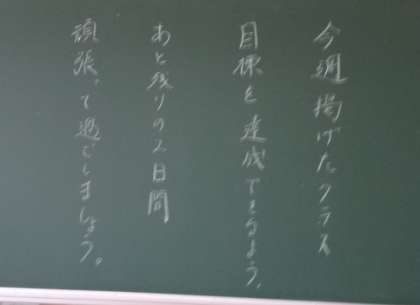 今週掲げたクラス
目標を達成できるよう、
あと残りの2日間
頑張って過ごしましょう。